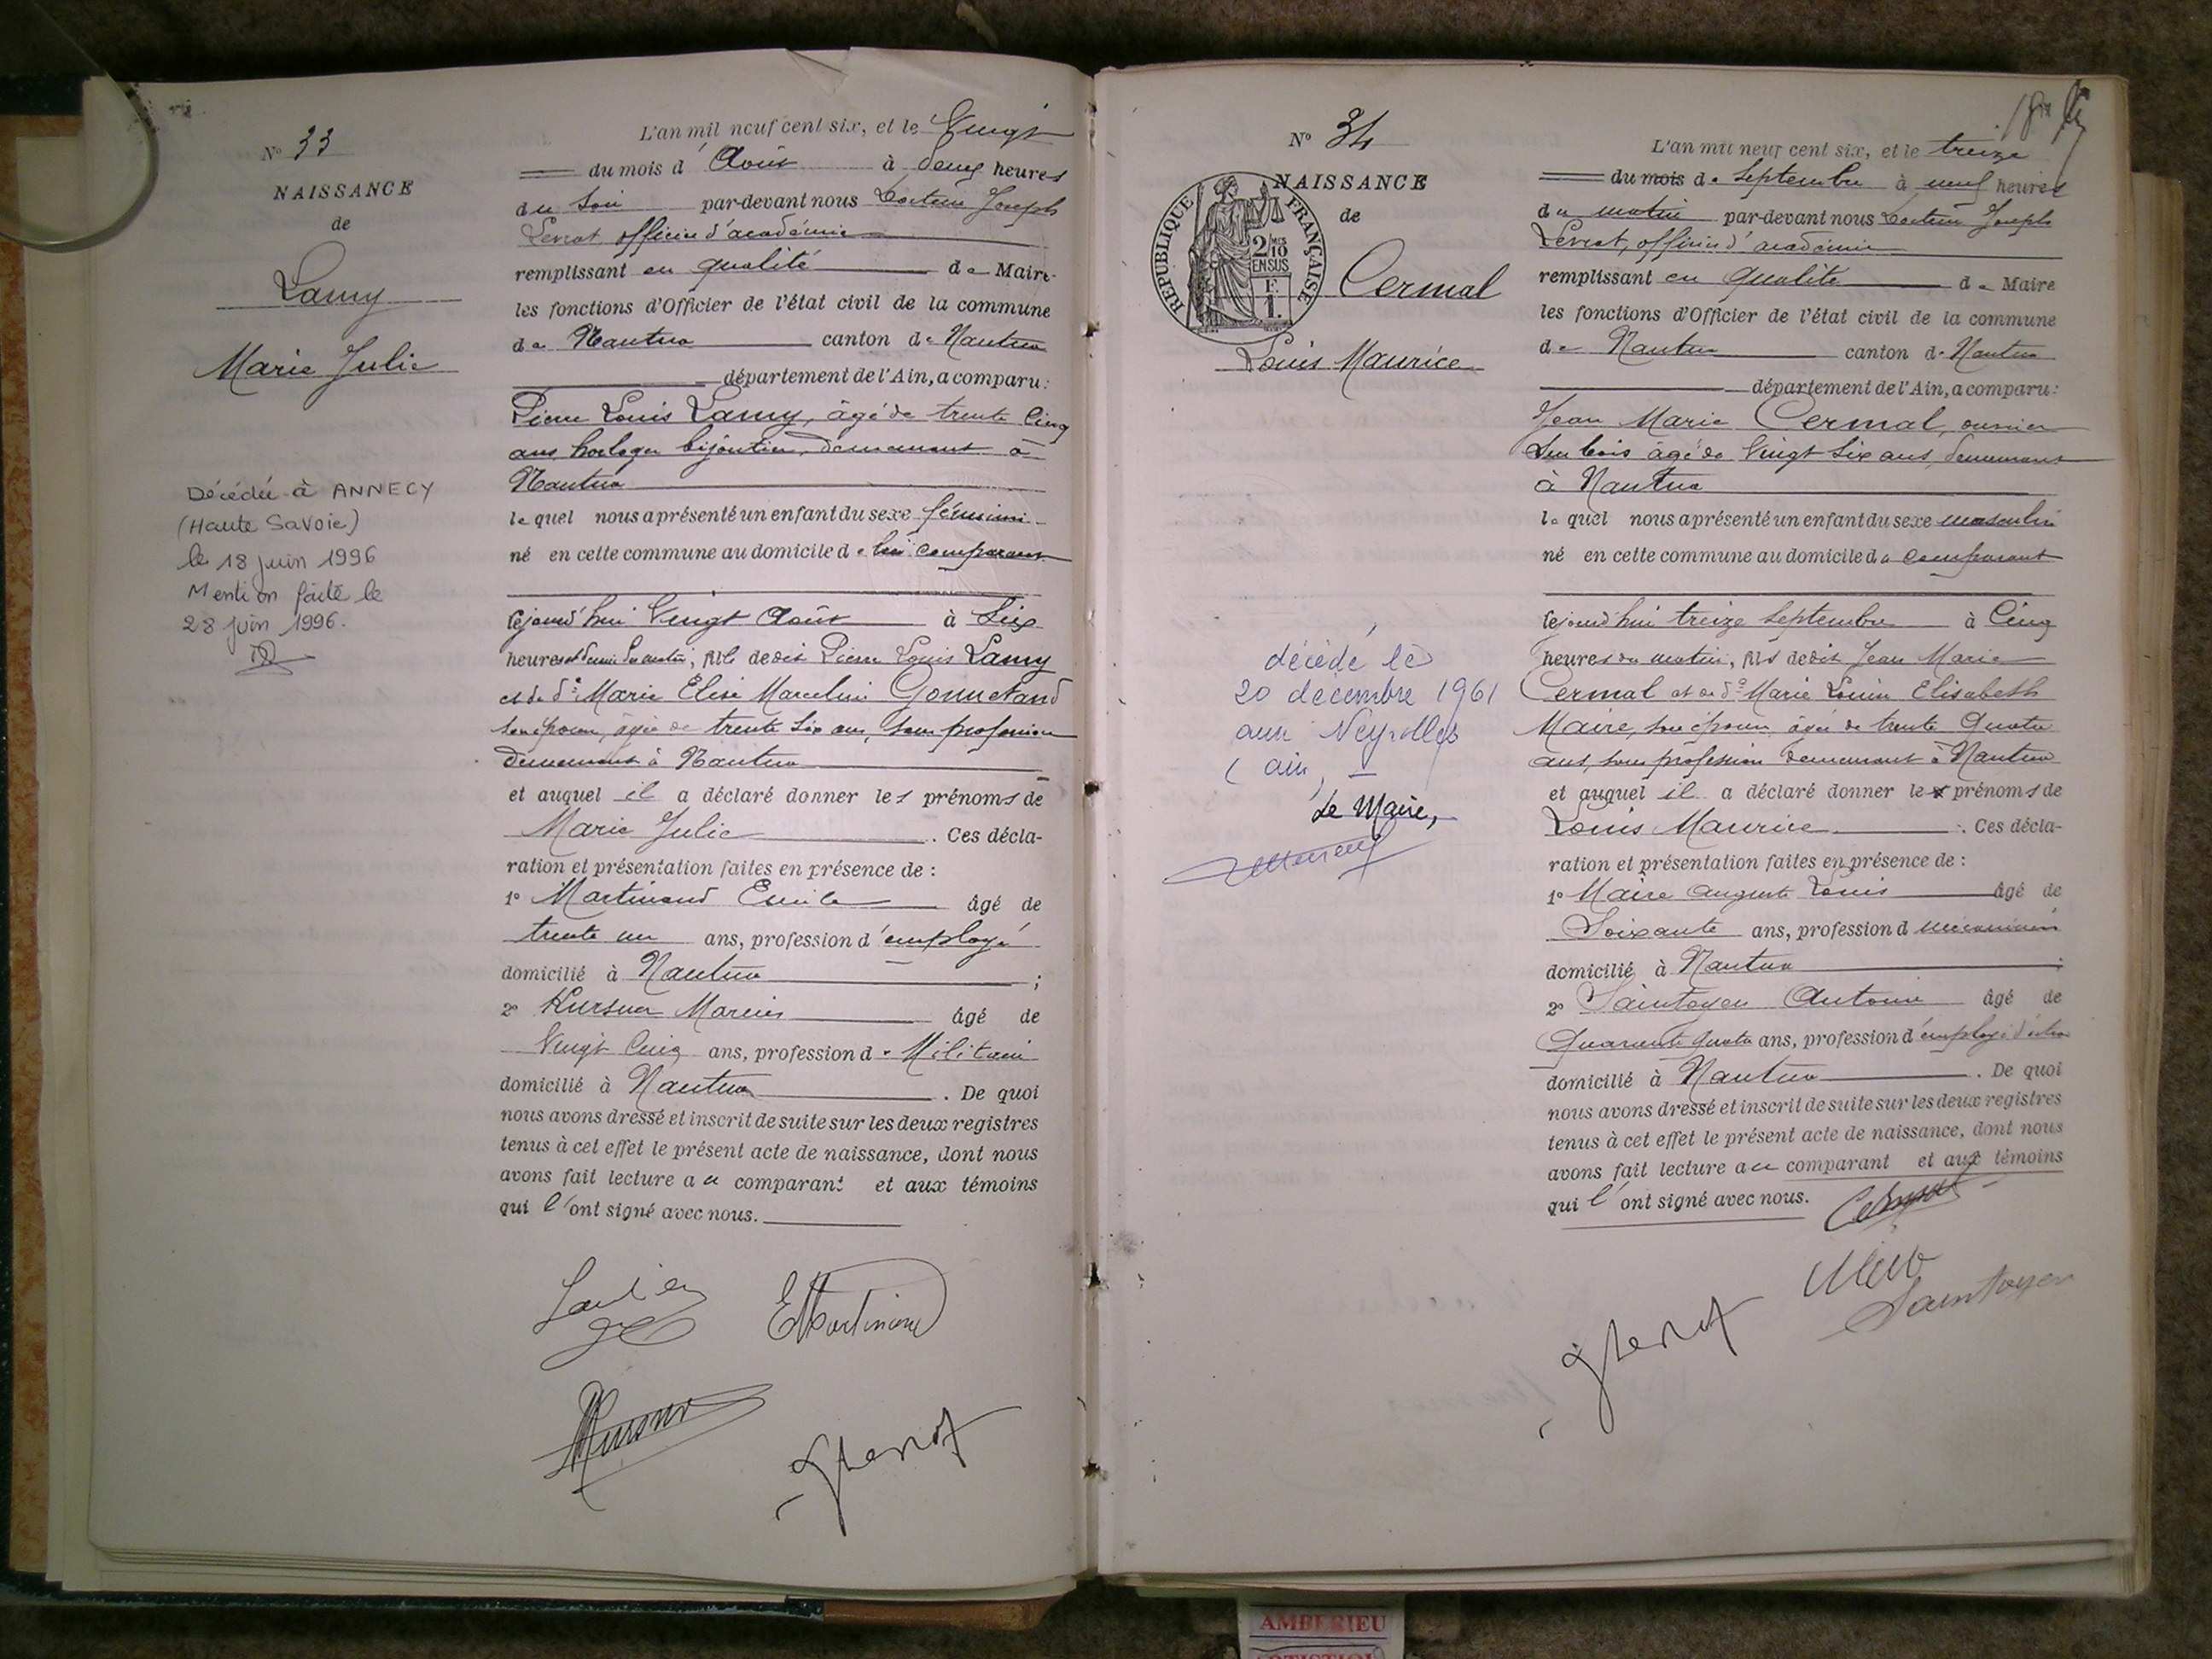 N° 33
NAISSANCE
de
Lamy
Marie Julie
Décédée à ANNECY
(Haute Savoie)
le 18 juin 1996
Mention faite le
28 juin 1996.
L'an mil neuf cent six, et le Vingt
du mois d'Août à deux heures
du Soir par-devant nous Docteur Joseph
Levrat officier d'académie
remplissant en qualité de Maire
les fonctions d'Officier de l'état civil de la commune
de Nantua canton de Nantua
département de l'Ain, a comparu:
Pierre Louis Lamy, âgé de trente Cinq
ans horloger bijoutier, demeurant à
Nantua
lequel nous a présenté un enfant du sexe féminin
né en cette commune au domicile de lui comparant
cejourd'hui Vingt Août à Six
heures et demie du matin, fille dedit Pierre Louis Lamy
et de De Marie Elise Marceline
son épouse, âgée de trente Six ans, sans profession
demeurant à Nantua
et auquel il a déclaré donner les prénoms de
Marie Julie. Ces décla-
ration et présentation faites en présence de :
1° Martinand Emile âgé de
trente un ans, profession d'employé
domicilié à Nantua ;
2° Kursner Marius âgé de
Vingt Cinq ans, profession de Militaire
domicilié à Nantua. De quoi
nous avons dressé et inscrit de suite sur les deux registres
tenus à cet effet le présent acte de naissance, dont nous
avons fait lecture au comparant et aux témoins
qui l'ont signé avec nous.
EMartinand
N° 34
NAISSANCE
de
RÉPUBLIQUE FRANÇAISE
2/10
EN SUS
Cermal
Louis Maurice
décédé le
20 décembre 1961
aux Neyrolles
(ain)
Le Maire,
L'an mil neuf cent six, et le treize
du mois de Septembre à neuf heures
du matin par-devant nous Docteur Joseph
Levrat, officier d'académie
remplissant en qualité de Maire
les fonctions d'Officier de l'état civil de la commune
de Nantua canton de Nantua
département de l'Ain, a comparu:
Jean Marie Cermal, ouvrier
sur bois âgé de Vingt Six ans, demeurant
à Nantua
lequel nous a présenté un enfant du sexe masculin
né en cette commune au domicile du comparant
cejourd'hui treize Septembre à Cinq
heures du matin, fils dedit Jean Marie
Cermal et de De Marie Louise Elisabeth
Maire, son épouse, âgée de trente Quatre
ans, sans profession demeurant à Nantua
et auquel il a déclaré donner les prénoms de
Louis Maurice. Ces décla-
ration et présentation faites en présence de :
1° Maire Auguste Louis âgé de
Soixante ans, profession d mécanicien
domicilié à Nantua ;
2° Saintoyen Antoine âgé de
Quarante Quatre ans, profession d'employé
domicilié à Nantua. De quoi
nous avons dressé et inscrit de suite sur les deux registres
tenus à cet effet le présent acte de naissance, dont nous
avons fait lecture au comparant et aux témoins
qui l'ont signé avec nous.
Saintoyen
AMBERIEU